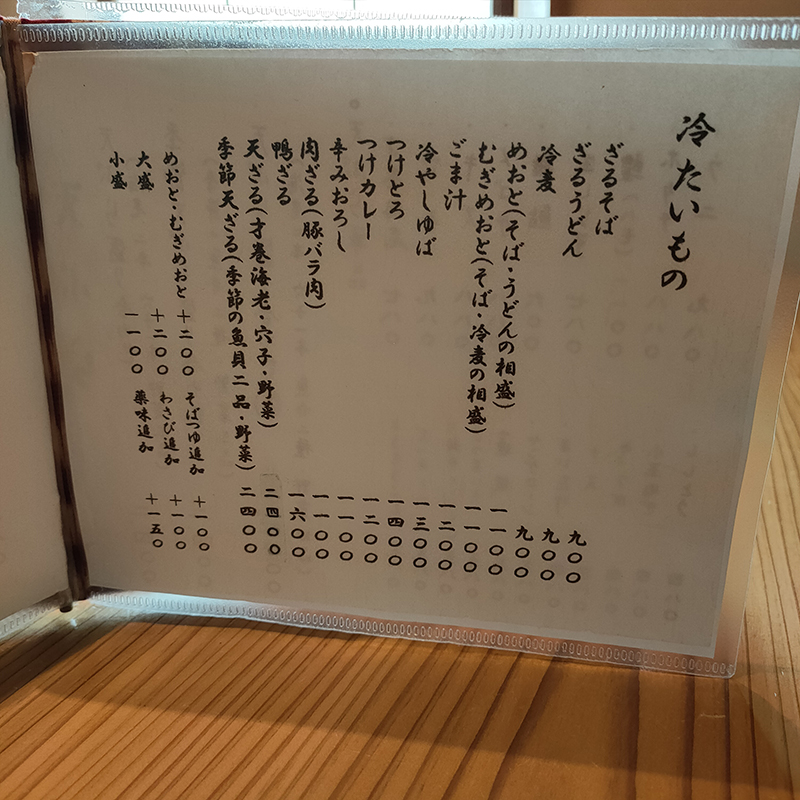 冷たいもの
ざるそば 九〇〇
ざるうどん 九〇〇
冷麦 九〇〇
めおと(そば・うどんの相盛) 一一〇〇
むぎめおと(そば・冷麦の相盛) 一一〇〇
ごま汁 一二〇〇
冷やしゆば 一三〇〇
つけとろ 一四〇〇
つけカレー 一二〇〇
辛みおろし 一一〇〇
肉ざる(豚バラ肉) 一一〇〇
鴨ざる 一六〇〇
天ざる(才巻海老・穴子・野菜) 二四〇〇
季節天ざる(季節の魚貝二品・野菜) 二四〇〇
めおと・むぎめおと +二〇〇
大盛 +二〇〇
小盛 -一〇〇
そばつゆ追加 +一〇〇
わさび追加 +一〇〇
薬味追加 +一五〇